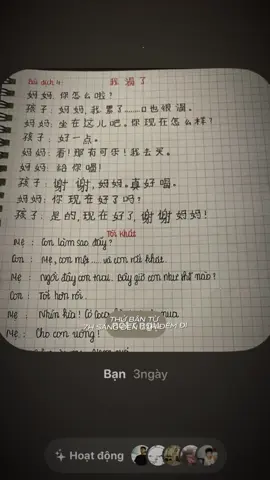 Bài dịch 4: 我渴了
妈妈: 你怎么啦?
孩子: 妈妈,我累了……口也很渴。
妈妈: 坐在这儿吧。你现在怎么样?
孩子: 好一点。
妈妈: 看!那有可乐!我去买。
妈妈: 给你喝!
孩子: 谢谢,妈妈。真好喝。
妈妈: 你现在好了吗?
孩子: 是的,现在好了,谢谢妈妈!
Tôi khát
Mẹ: Con làm sao đấy?
Con: Mẹ, con mệt ... và con rất khát.
Mẹ: Ngồi đây con trai. Bây giờ con như thế nào?
Con: Tốt hơn rồi.
Mẹ: Nhìn kìa! Có Coca mua.
Mẹ: Cho con uống!
THỨ BẢN
Bạn 3ngày
Hoạt động